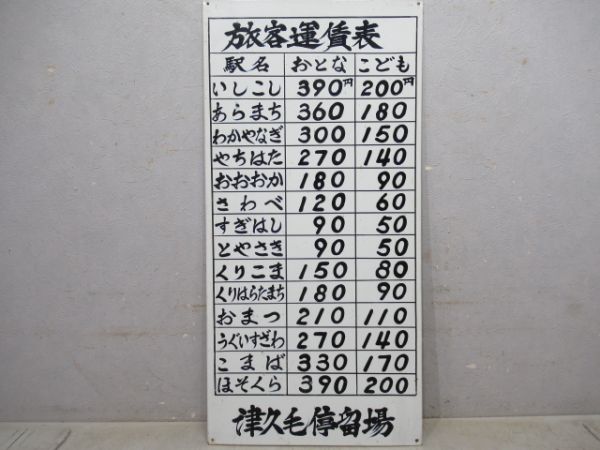 旅客運賃表
駅名 おとな こども
いしこし 390円 200円
あらまち 360 180
わかやなぎ 300 150
やちはた 270 140
おおおか 180 90
さわべ 120 60
すぎはし 90 50
とやさき 90 50
くりこま 150 80
くりはらたまち 180 90
おまつ 210 110
うぐいすざわ 270 140
こまば 330 170
ほそくら 390 200
津久毛停留場